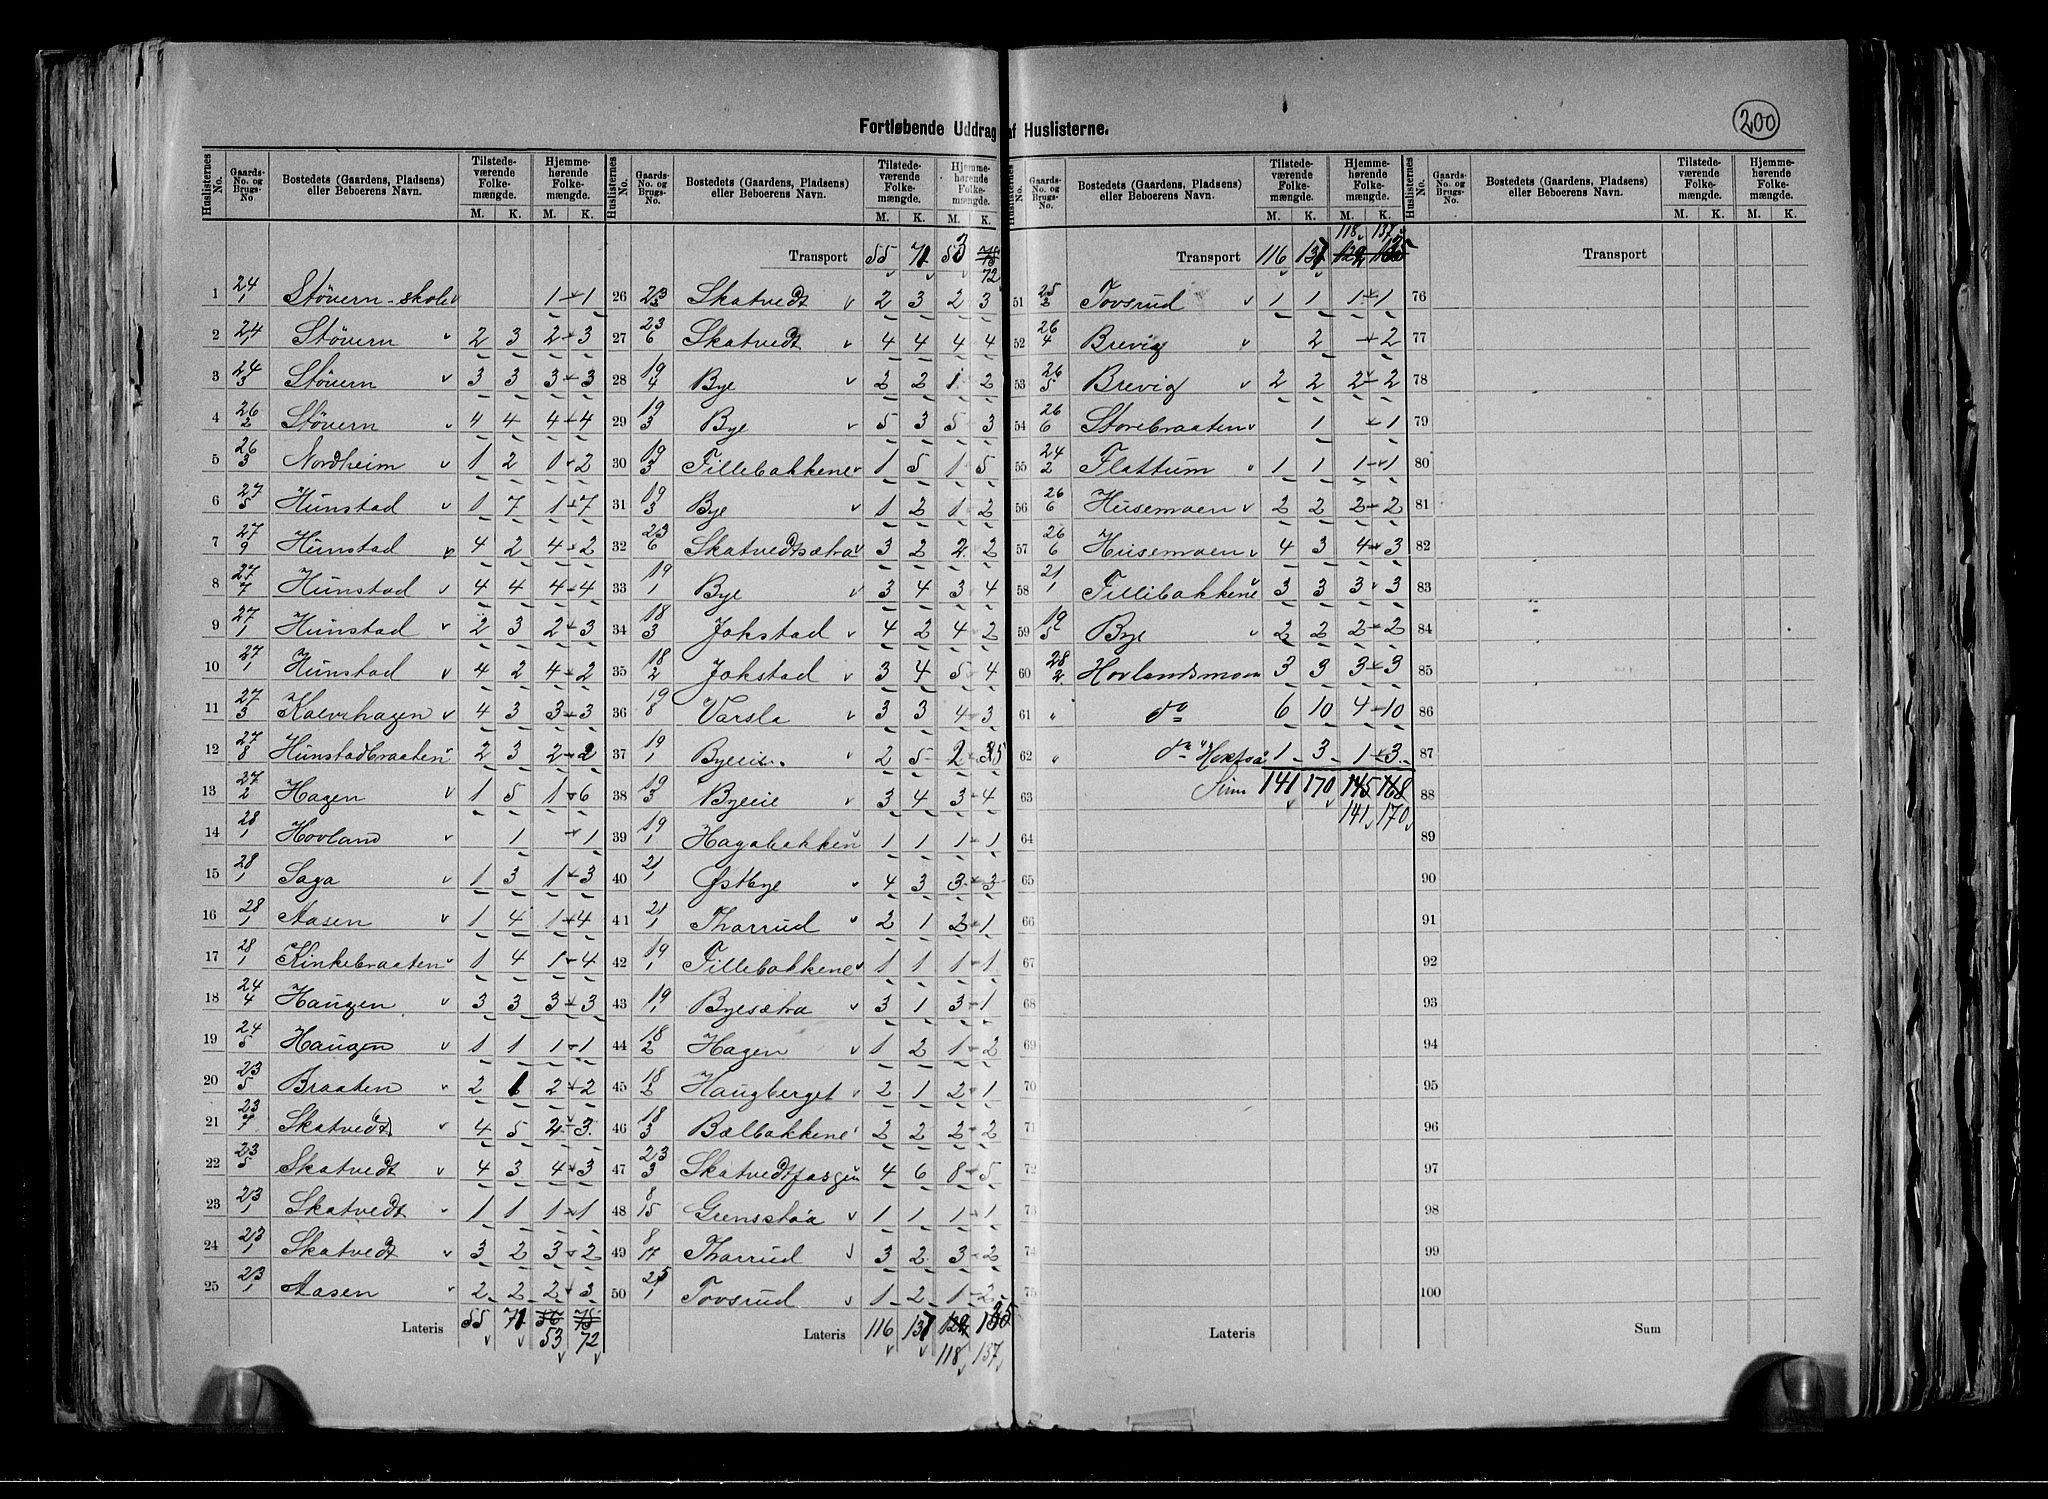 200
Fortløbende Uddrag af Huslisterne.
Huslisternes No. | Gaards-No. og Brugs-No. | Bostedets (Gaardens, Pladsens) eller Beboerens Navn. | Tilstedeværende Folkemængde. M. K. | Hjemmehørende Folkemængde. M. K.
1 24/1 Støvern-skole 1 1
2 24/1 Støvern 2 3 2 3
3 24/3 Støvern 3 3 3 3
4 26/2 Støvern 4 4 4 4
5 26/3 Nordheim 1 2 1 2
6 27/5 Hunstad 1 7 1 7
7 27/9 Hunstad 4 2 4 2
8 27/7 Hunstad 4 4 4 4
9 27/1 Hunstad 2 3 2 3
10 27/1 Hunstad 4 2 4 2
11 27/3 Kalvehagen 4 3 3 3
12 27/8 Hunstadbraaten 2 3 2 2
13 27/2 Hagen 1 5 1 6
14 28/1 Hovland 1 1
15 28/1 Saga 1 3 1 3
16 28/1 Aasen 1 4 1 4
17 28/1 Kinkebraaten 1 4 1 4
18 24/4 Haugen 3 3 3 3
19 24/5 Haugen 1 1 1 1
20 23/5 Braaten 2 1 2 2
21 23/4 Skatvedt 4 5 2 3
22 23/5 Skatvedt 4 3 4 3
23 23/1 Skatvedt 1 1 1 1
24 23/1 Skatvedt 3 2 3 2
25 23/1 Aasen 2 2 2 3
Lateris 55 71 56 75
53 72
Transport 55 71 53 75
72
26 23/3 Skatvedt 2 3 2 3
27 23/6 Skatvedt 4 4 4 4
28 19/4 Bye 2 2 1 2
29 19/3 Bye 5 3 5 3
30 19/3 Tillebakkene 1 5 1 5
31 19/3 Bye 1 2 1 2
32 23/6 Skatvedtsætra 3 2 2 2
33 19/1 Bye 3 4 3 4
34 18/3 Jokstad 4 2 4 2
35 18/2 Jokstad 3 4 5 4
36 19/8 Varsla 3 3 4 3
37 19/1 Byeeie 2 5 2 5
38 19/3 Byeeie 3 4 3 4
39 19/1 Hagabakken 1 1 1 1
40 21/1 Østbye 4 3 3 3
41 21/1 Tharrud 2 1 2 1
42 19/1 Tillebakkene 1 1 1 1
43 19/1 Byesætra 3 1 3 1
44 18/2 Hagen 1 2 1 2
45 18/2 Haugberget 2 1 2 1
46 18/3 Bælbakkene 2 2 2 2
47 23/3 Skatvedt 4 6 8 5
48 8/15 Grensstøa 1 1 1 1
49 8/17 Tharrud 3 2 3 2
50 25/1 Tovsrud 1 2 1 2
Lateris 116 137 129 135
118 137
118 137
Transport 116 137 129 135
51 25/2 Tovsrud 1 1 1 1
52 26/4 Brevig 2 2
53 26/5 Brevig 2 2 2 2
54 26/6 Storebraaten 1 1
55 24/2 Flattum 1 1 1 1
56 26/6 Husemoen 2 2 2 2
57 26/6 Husemoen 4 3 4 3
58 21/1 Tillibakkene 3 3 3 3
59 19/5 Bye 2 2 2 2
60 28/2 Hovlandsmoen 3 3 3 3
61 " do 6 10 4 10
62 " do 1 3 1 3
63 Sum 141 170 145 168
141 170
64
65
66
67
68
69
70
71
72
73
74
75
Lateris
Transport
76
77
78
79
80
81
82
83
84
85
86
87
88
89
90
91
92
93
94
95
96
97
98
99
100
Sum